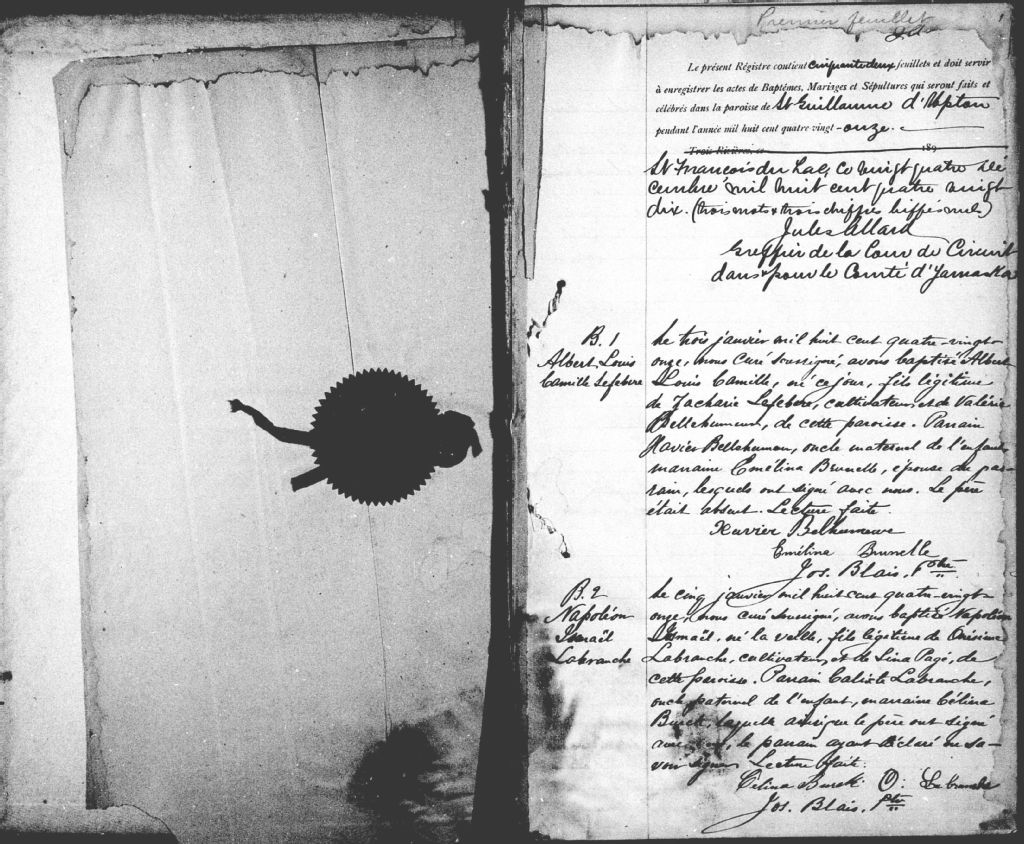 Premier feuillet
1
Le présent Régistre contient cinquante deux feuillets et doit servir
à enregistrer les actes de Baptêmes, Mariages et Sépultures qui seront faits et
célébrés dans la paroisse de St Guillaume d'Upton
pendant l'année mil huit cent quatre vingt-onze.
Trois Rivières, ce 189
St François du Lac, ce vingt quatre dé
cembre mil huit cent quatre vingt
dix. (trois mots & trois chiffres biffés nuls)
Jules Allard
Greffier de la Cour de Circuit
dans & pour le Comté d'Yamaska
B. 1
Albert Louis
Camille Lefebvre
Le trois janvier mil huit cent quatre-vingt-
onze, nous curé soussigné, avons baptisé Albert
Louis Camille, né ce jour, fils légitime
de Zacharie Lefebvre, cultivateur, et de Valérie
Bellehumeur, de cette paroisse. Parrain
Xavier Bellehumeur, oncle maternel de l'enfant,
marraine Emélina Brunelle, épouse du par-
rain, lesquels ont signé avec nous. Le père
était absent. Lecture faite
Xavier Belhumeur
Emélina Brunelle
Jos. Blais, Ptre
B. 2
Napoléon
Ismaël
Labranche
Le cinq janvier mil huit cent quatre-vingt-
onze, nous curé soussigné, avons baptisé Napoléon
Ismaël, né la veille, fils légitime de Onésime
Labranche, cultivateur, et de Lina Pagé, de
cette paroisse. Parrain Calixte Labranche,
oncle paternel de l'enfant, marraine Célina
laquelle ainsi que le père ont signé
avec le parrain ayant déclaré ne sa-
voir signer Lecture faite.
Célina O. Labranche
Jos. Blais, Ptre